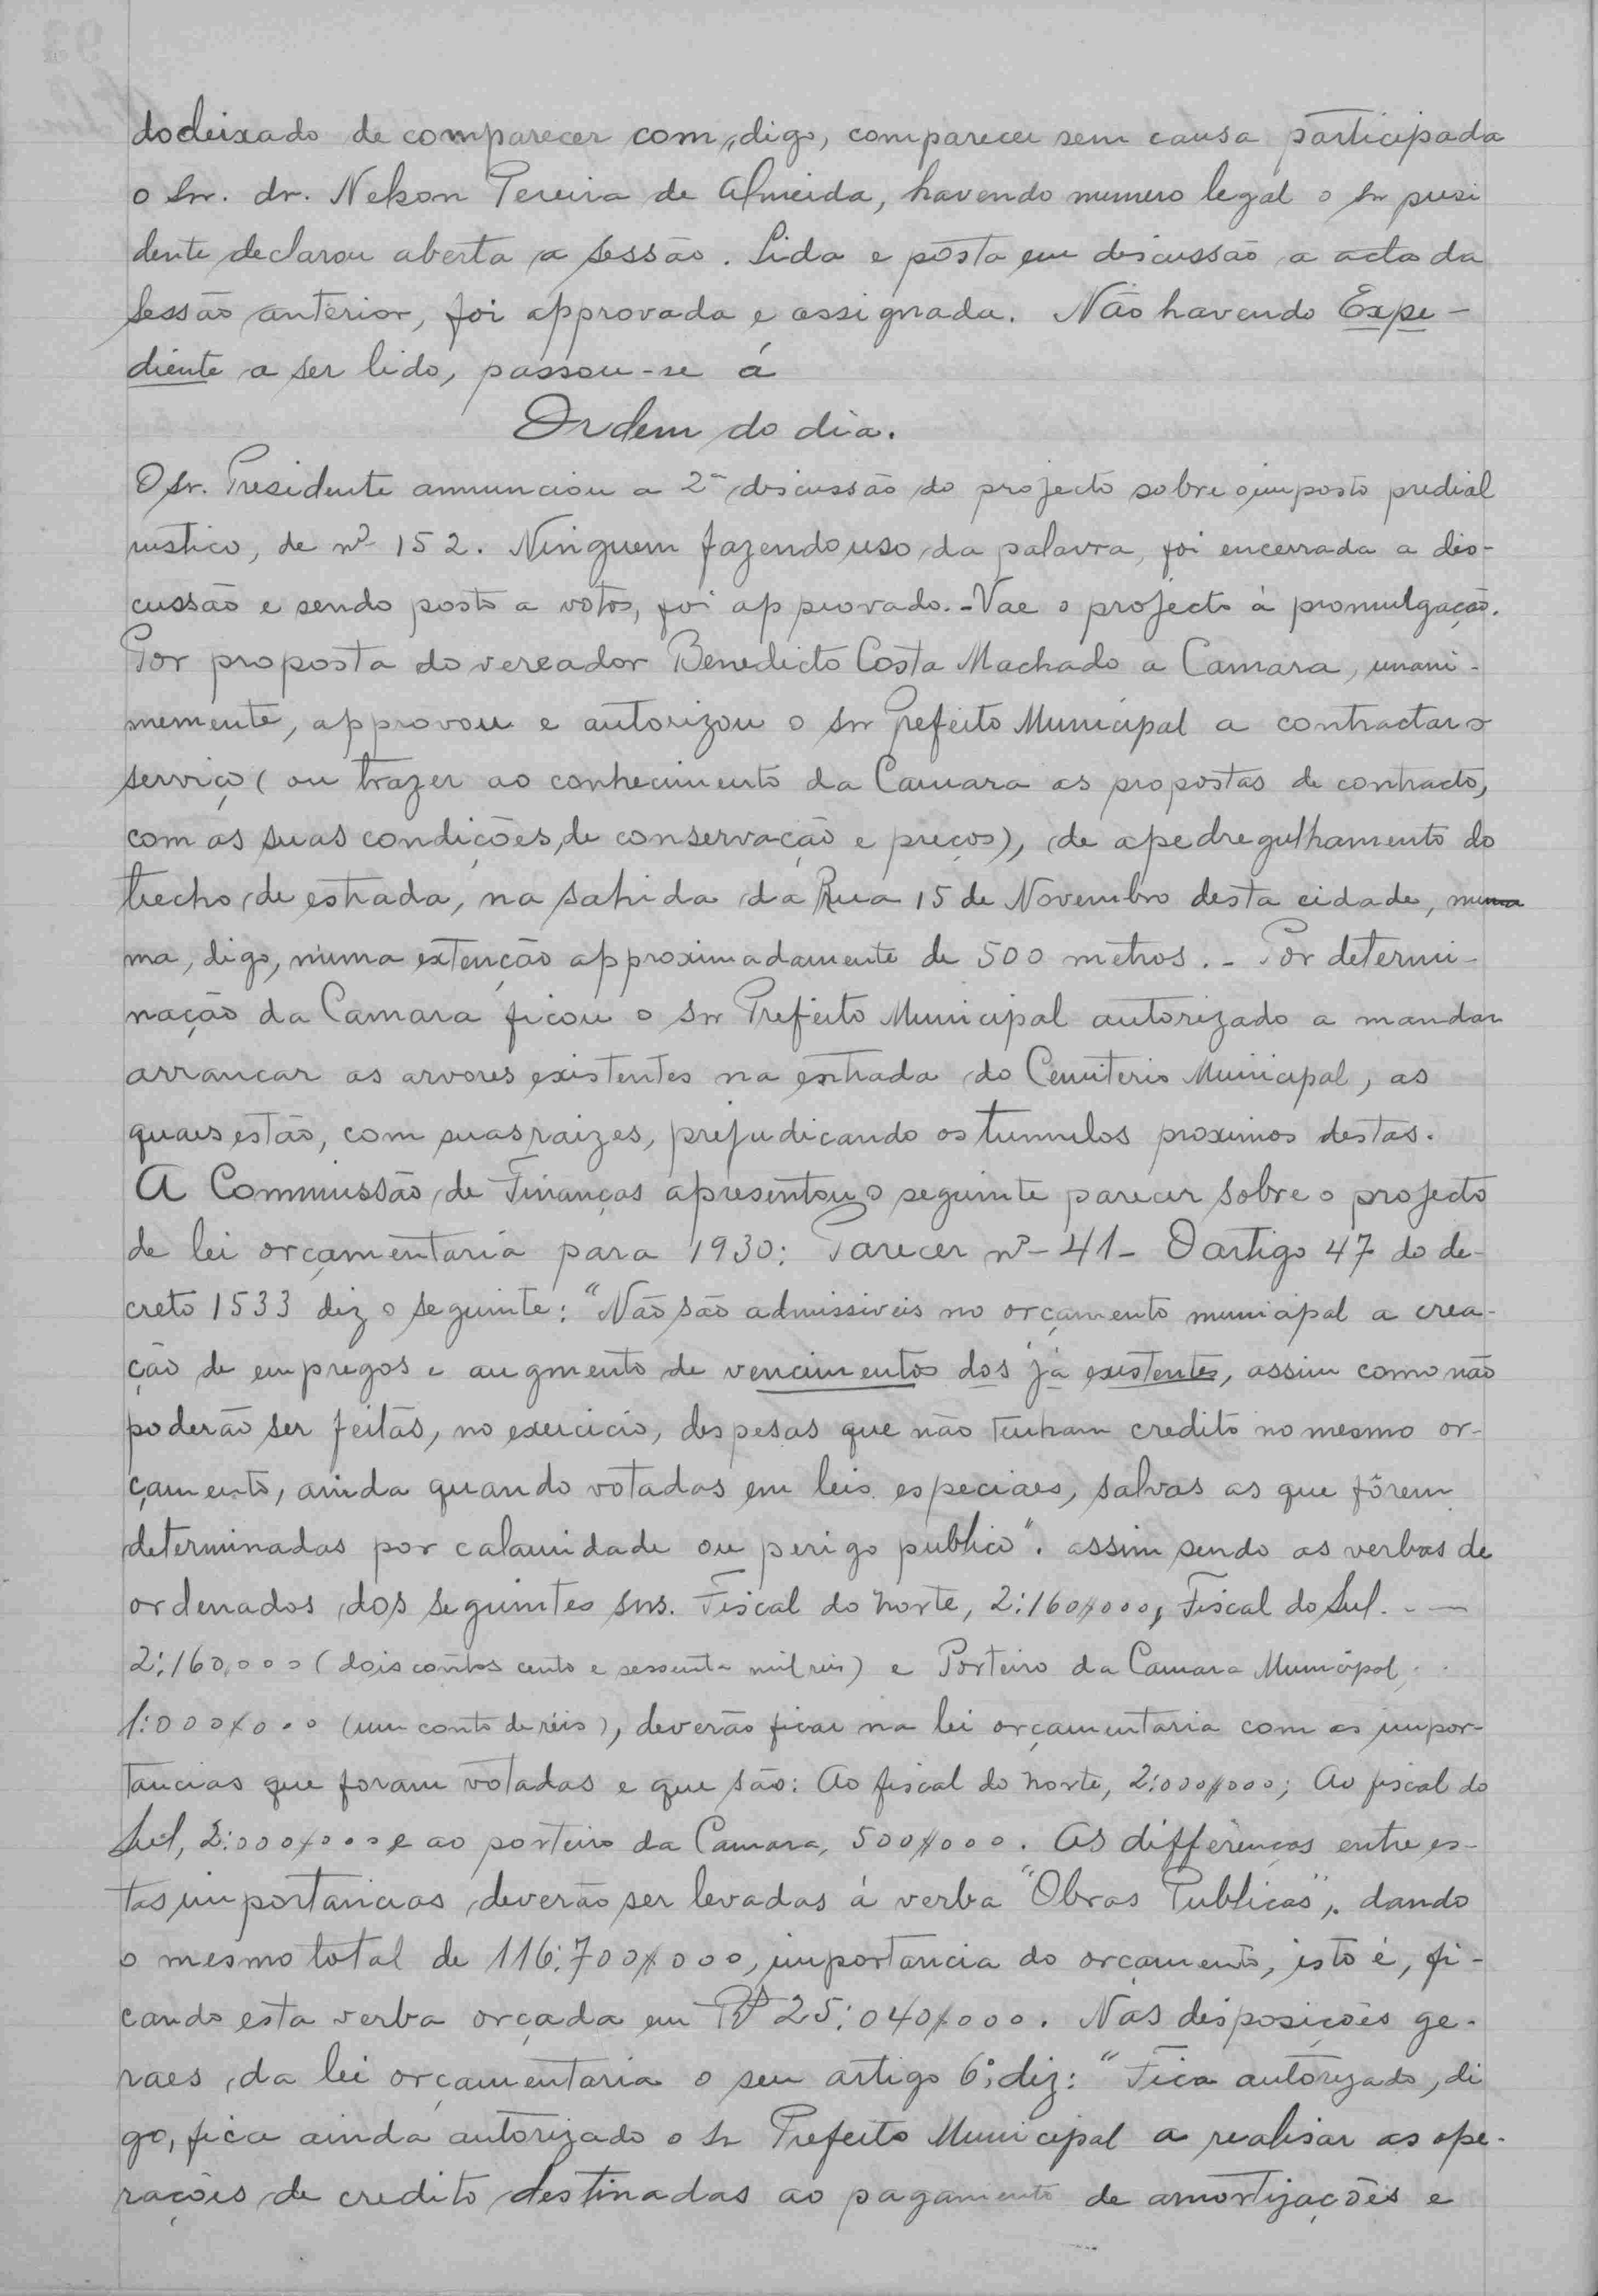 do deixado de comparecer com, digo, comparecer sem causa participada
o Snr. dr. Nelson Pereira de Almeida, havendo numero legal o snr presi
dente declarou aberta a sessão. Lida e posta em discussão a acta da
sessão anterior, foi approvada e assignada. Não havendo Expe-
diente a ser lido, passou-se á
Ordem do dia.
O sr. Presidente annunciou a 2ª discussão do projecto sobre o imposto predial
rustico, de nº 152. Ninguem fazendo uso da palavra, foi encerrada a dis-
cussão e sendo posto a votos, foi approvado. - Vae o projecto á promulgação.
Por proposta do vereador Benedicto Costa Machado a Camara, unani-
memente, approvou e autorizou o snr Prefeito Municipal a contractar o
serviço (ou trazer ao conhecimento da Camara as propostas de contracto,
com as suas condições, de conservação e preços), de apedregulhamento do
trecho de estrada, na sahida da Rua 15 de Novembro desta cidade, numa
ma, digo, numa extenção approximadamente de 500 metros. - Por determi-
nação da Camara ficou o snr Prefeito Municipal autorizado a mandar
arrancar as arvores existentes na entrada do Cemiterio Municipal, as
quaes estão, com suas raizes, prejudicando os tumulos proximos destas.
A Commissão de Finanças apresentou o seguinte parecer sobre o projecto
de lei orçamentaria para 1930: Parecer nº - 41 - O artigo 47 do de-
creto 1533 diz o seguinte: "Não são admissiveis no orçamento municipal a crea-
ção de empregos e augmento de vencimentos dos já existentes, assim como não
poderão ser feitas, no exercicio, despesas que não tenham credito no mesmo or-
çamento, ainda quando votadas em leis especiaes, salvas as que fôrem
determinadas por calamidade ou perigo publico". assim sendo as verbas de
ordenados dos seguintes snrs. Fiscal do norte, 2:160$000, Fiscal do Sul. - —
2:160,000 (dois contos cento e sessenta mil reis) e Porteiro da Camara Municipal,
1:000$000 (um conto de réis), deverão ficar na lei orçamentaria com as impor-
tancias que foram votadas e que são: Ao fiscal do norte, 2:000$000; Ao fiscal do
Sul, 2:000$000 e ao porteiro da Camara, 500$000. As differenças entre es-
tas importancias deverão ser levadas á verba "Obras Publicas", dando
o mesmo total de 116:700$000, importancia do orçamento, isto é, fi-
cando esta verba orçada em Rs 25:040$000. Nas disposições ge-
raes da lei orçamentaria o seu artigo 6º, diz: "Fica autorizado, di
go, fica ainda autorizado o Sr Prefeito Municipal a realisar as ope-
rações de credito destinadas ao pagamento de amortizações e